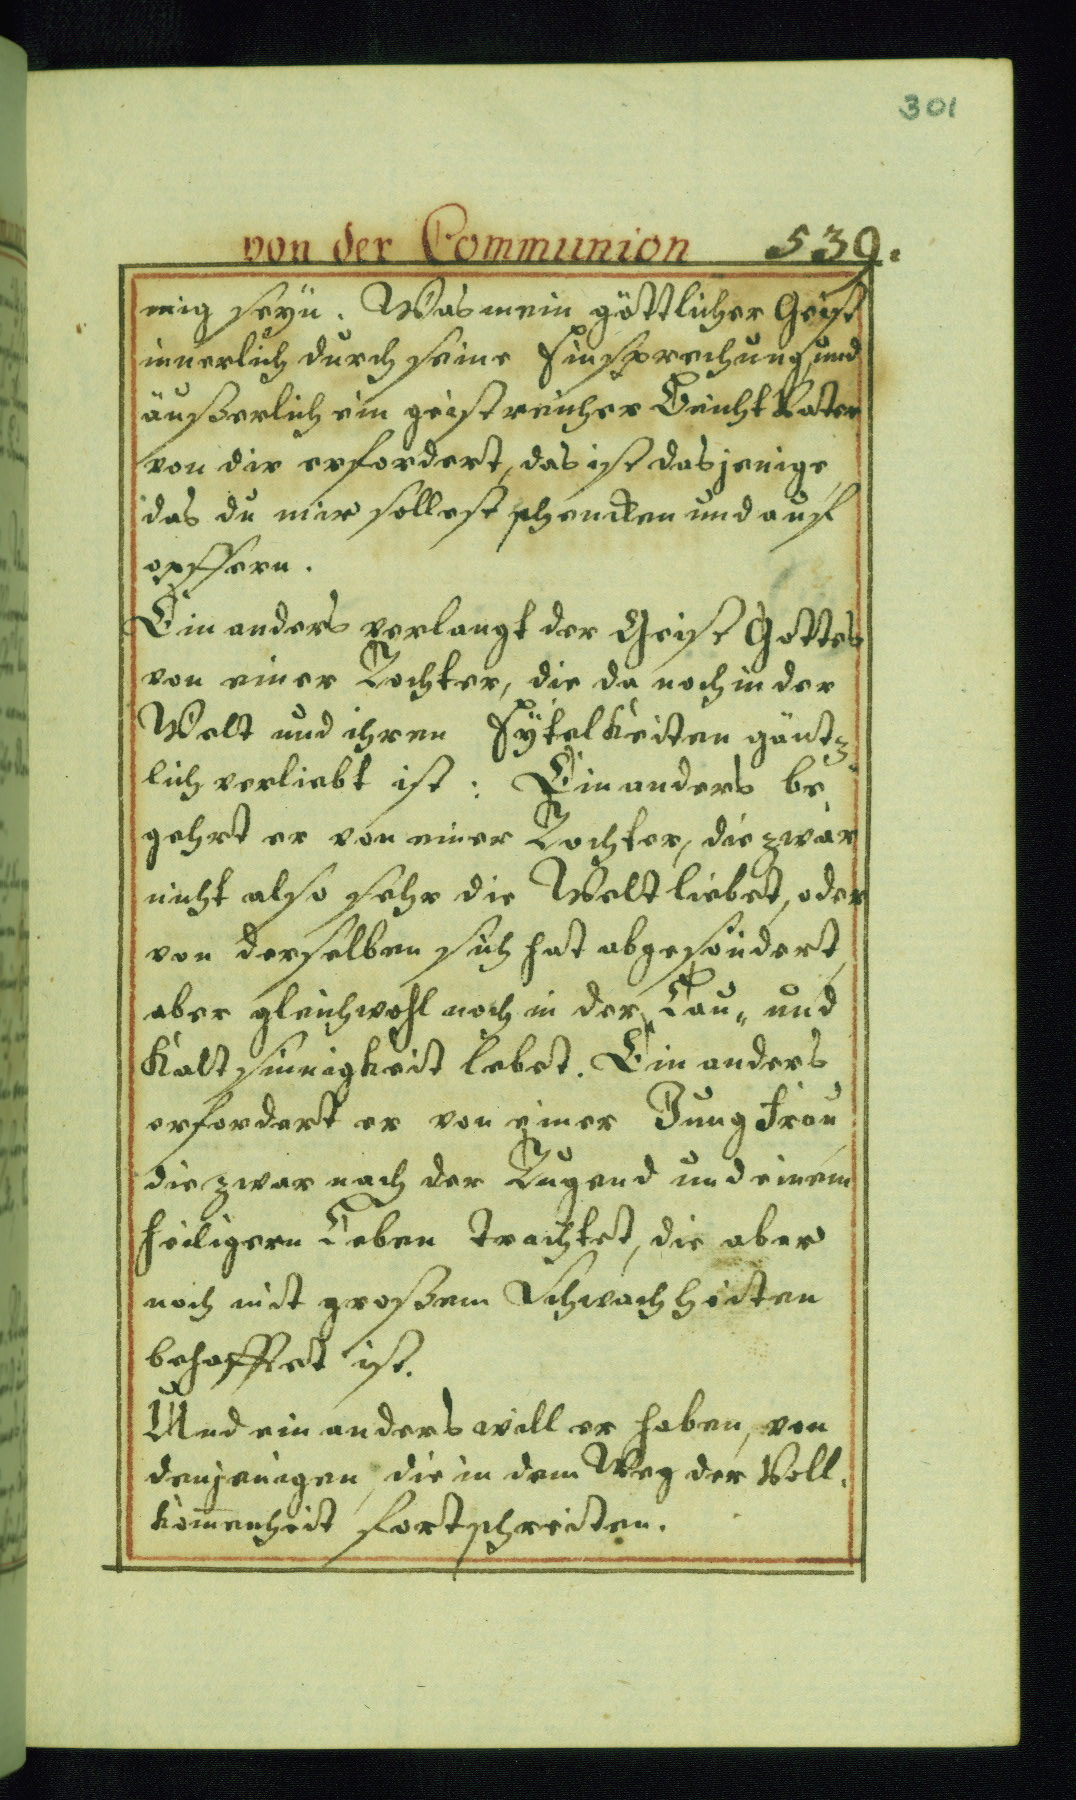 301
von der Communion 539.
mig seyn. Was mein göttlicher Geist
innerlich durch seine Einsprechung, und
äußerlich ein geistreicher Beicht Vater
von dir erfordert, das ist dasjenige
das du mir sollest schencken und auf
opffern.
Ein anders verlangt der Geist Gottes
von einer Tochter, die da noch in der
Welt und ihren Eÿtelkeiten gäntz
lich verliebt ist: Ein anders be
gehrt er von einer Tochter, die zwar
nicht also sehr die Welt liebet, oder
von derselben sich hat abgesöndert,
aber gleichwohl noch in der Lau- und
Kaltsinnigkeit lebet. Ein anders
erfordert er von einer Jungfrau
die zwar nach der Tugend und einem
heiligern Leben trachtet, die aber
noch mit großem Schwachheiten
behafftet ist.
Und ein anders will er haben, von
denjenigen, die in dem Weg der Voll-
kom̄enheit fortschreiten.